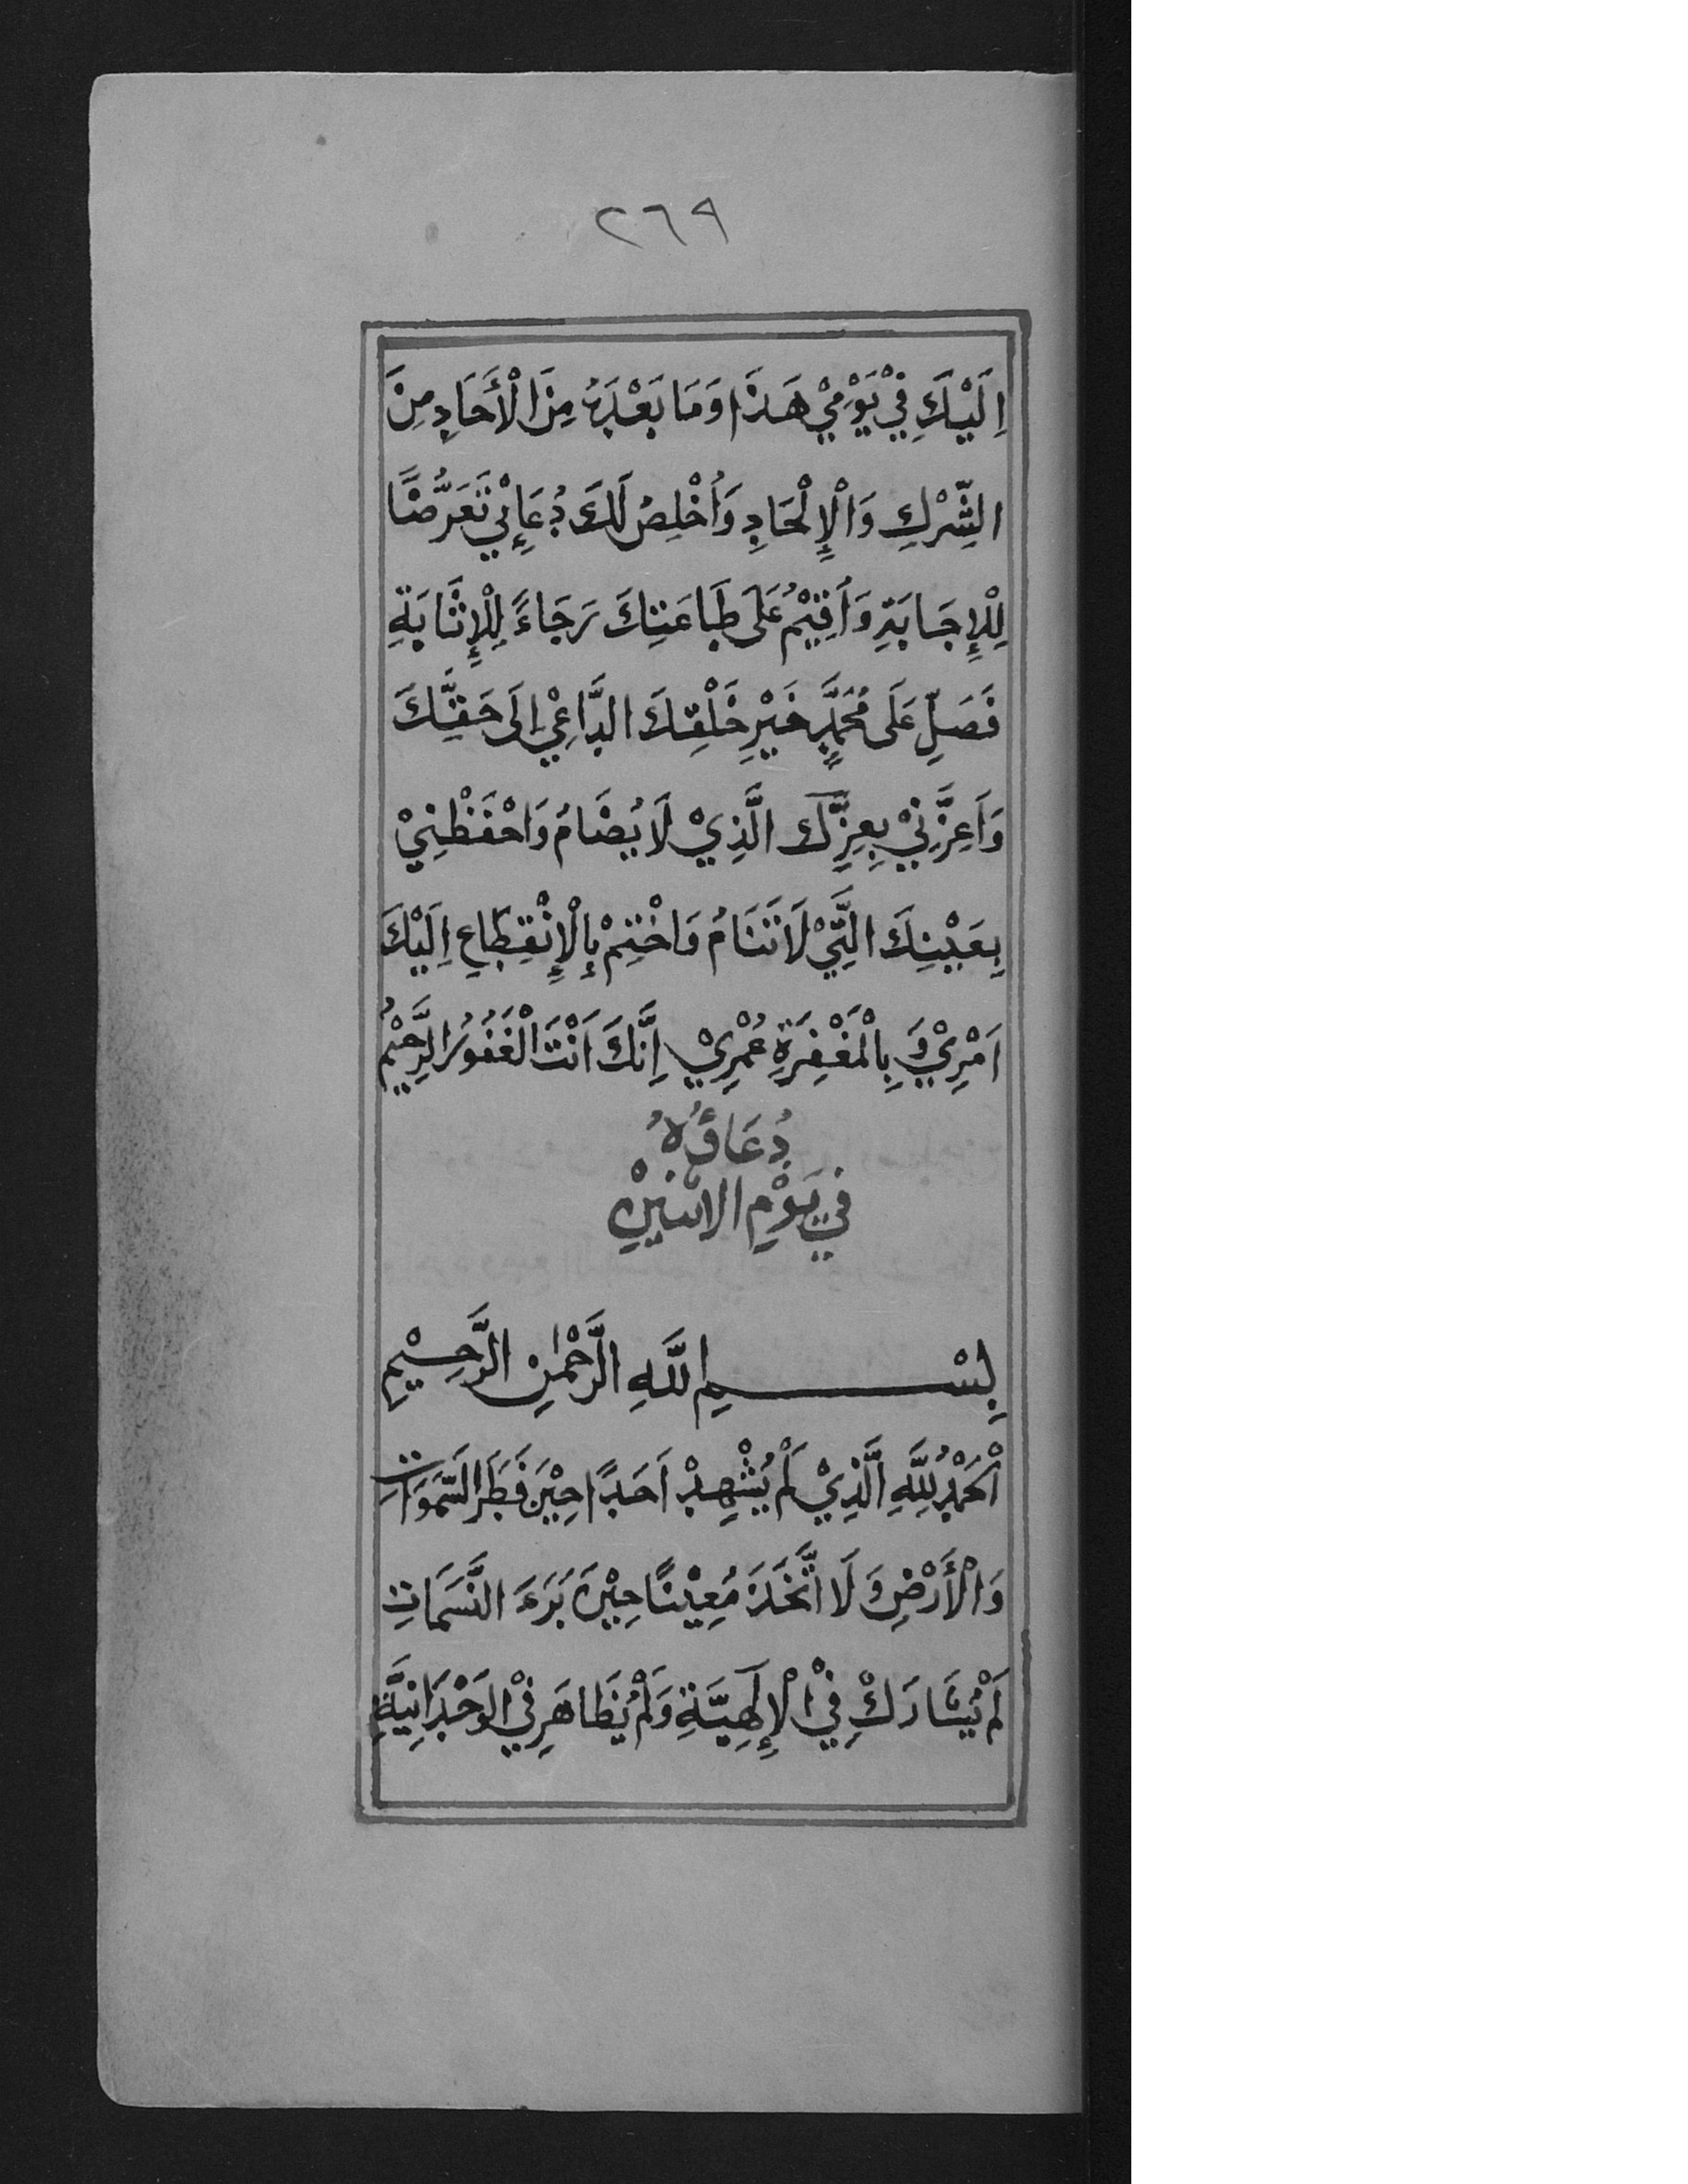 ٢٦٩
اِلَيْكَ فِيْ يَوْمِيْ هَذَا وَمَا بَعْدَهُ مِنَ الْأَحَادِ مِنَ
الشِّرْكِ وَالْإِلْحَادِ وَاُخْلِصُ لَكَ دُعَائِيْ تَعَرُّضًا
لِلْإِجَابَةِ وَاُقِيْمُ عَلَى طَاعَتِكَ رَجَاءً لِلْإِثَابَةِ
فَصَلِّ عَلَى مُحَمَّدٍ خَيْرِ خَلْقِكَ الدَّاعِيْ اِلَى حَقِّكَ
وَاَعِزَّنِيْ بِعِزِّكَ الَّذِيْ لَا يُضَامُ وَاحْفَظْنِيْ
بِعَيْنِكَ الَّتِيْ لَا تَنَامُ وَاخْتِمْ بِالْإِنْقِطَاعِ اِلَيْكَ
اَمْرِيْ وَ بِالْمَغْفِرَةِ عُمْرِيْ اِنَّكَ اَنْتَ الْغَفُوْرُ الرَّحِيْمُ
دُعَاؤُهُ
فِيْ يَوْمِ الاثْنَيْنِ
بِسْمِ اللَّهِ الرَّحْمٰنِ الرَّحِيْمِ
اَلْحَمْدُ لِلَّهِ الَّذِيْ لَمْ يُشْهِدْ اَحَدًا حِيْنَ فَطَرَ السَّمَوَاتِ
وَالْأَرْضِ وَ لَا اتَّخَذَ مُعِيْنًا حِيْنَ بَرَءَ النَّسَمَاتِ
لَمْ يُشَارَكْ فِيْ الْإِلَهِيَّةِ وَلَمْ يُظَاهَر فِيْ الوَحْدَانِيَّةِ